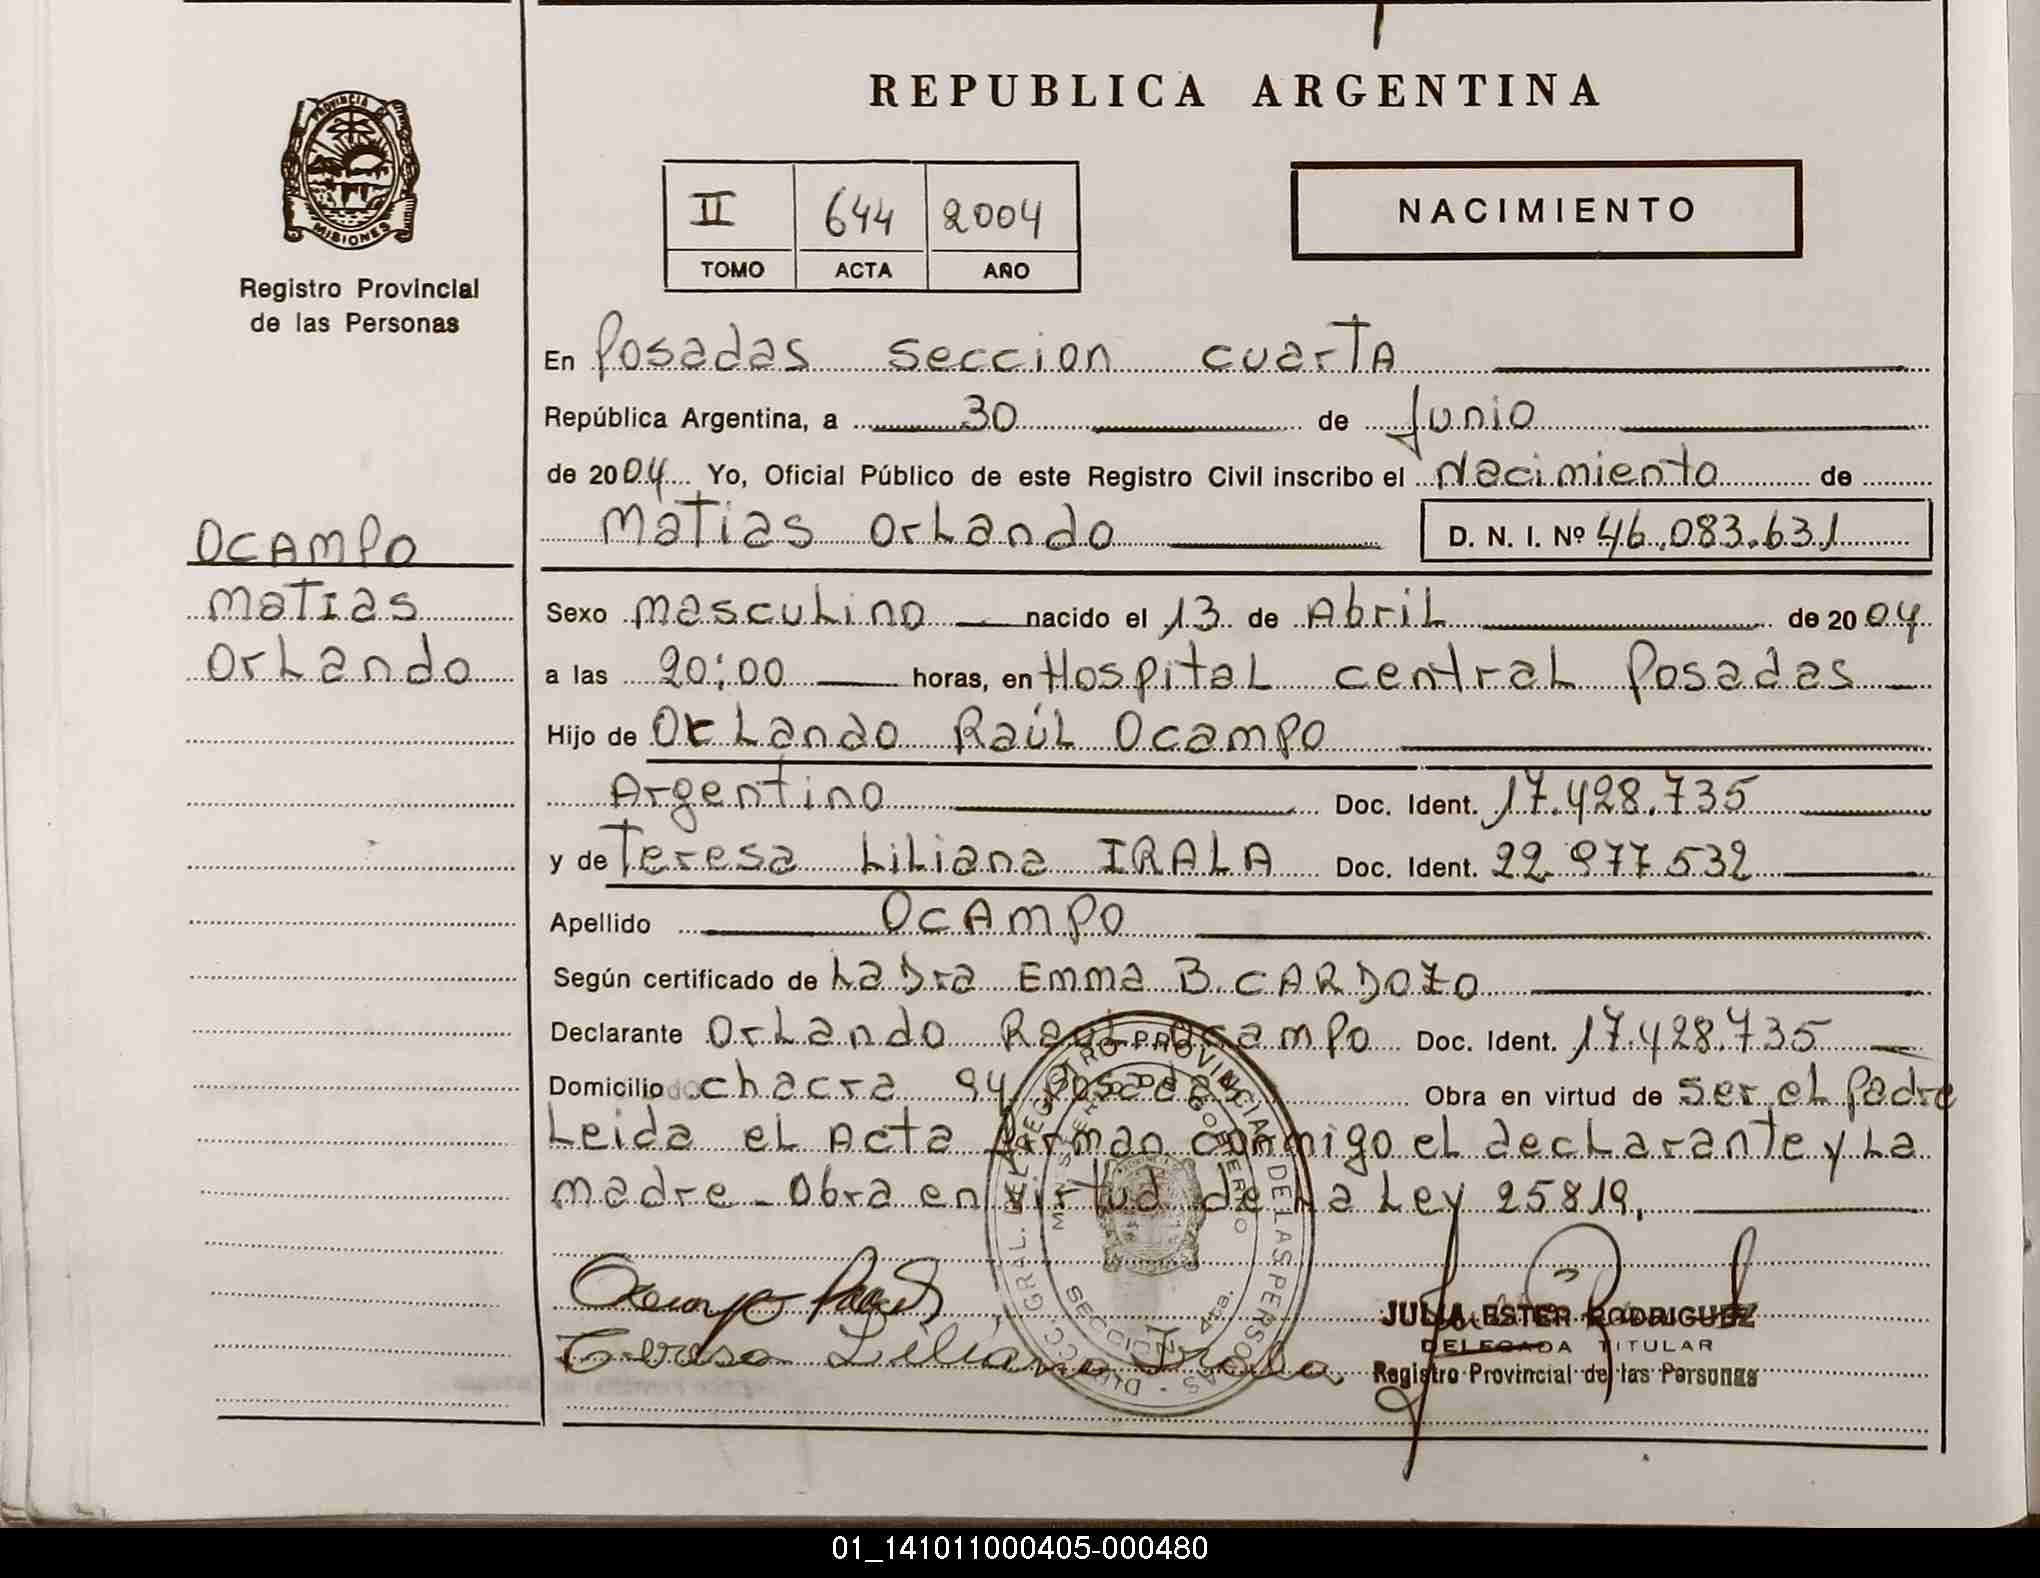 REPUBLICA ARGENTINA
PROVINCIA DE
MISIONES
Registro Provincial
de las Personas
II 644 2004
TOMO ACTA AÑO
NACIMIENTO
En Posadas seccion cuarTA
República Argentina, a 30 de Junio
de 2004 Yo, Oficial Público de este Registro Civil inscribo el Nacimiento de
Matias Orlando D. N. I. Nº 46.083.631
OCAMPO
MaTIas
Orlando
Sexo masculino nacido el 13 de Abril de 2004
a las 20:00 horas, en Hospital central Posadas
Hijo de Orlando Raúl Ocampo
Argentino Doc. Ident. 17.428.735
y de Teresa Liliana IRALA Doc. Ident. 22.977.532
Apellido OCAMPO
Según certificado de La Dra Emma B. CARDOZO
Declarante Orlando Raúl Ocampo Doc. Ident. 17.428.735
Domicilio chacra 94 Posadas Obra en virtud de ser el Padre
Leida el Acta firman conmigo el declarante y La
madre - Obra en virtud de La Ley 25819,
DIRECC. GRAL. DEL REGISTRO PROVINCIAL DE LAS PERSONAS
MINISTERIO DE GOBIERNO
SECCION 4ta.
Ocampo Raul
Teresa Liliana Irala
JULIA ESTER RODRIGUEZ
DELEGADA TITULAR
Registro Provincial de las Personas
01_141011000405-000480